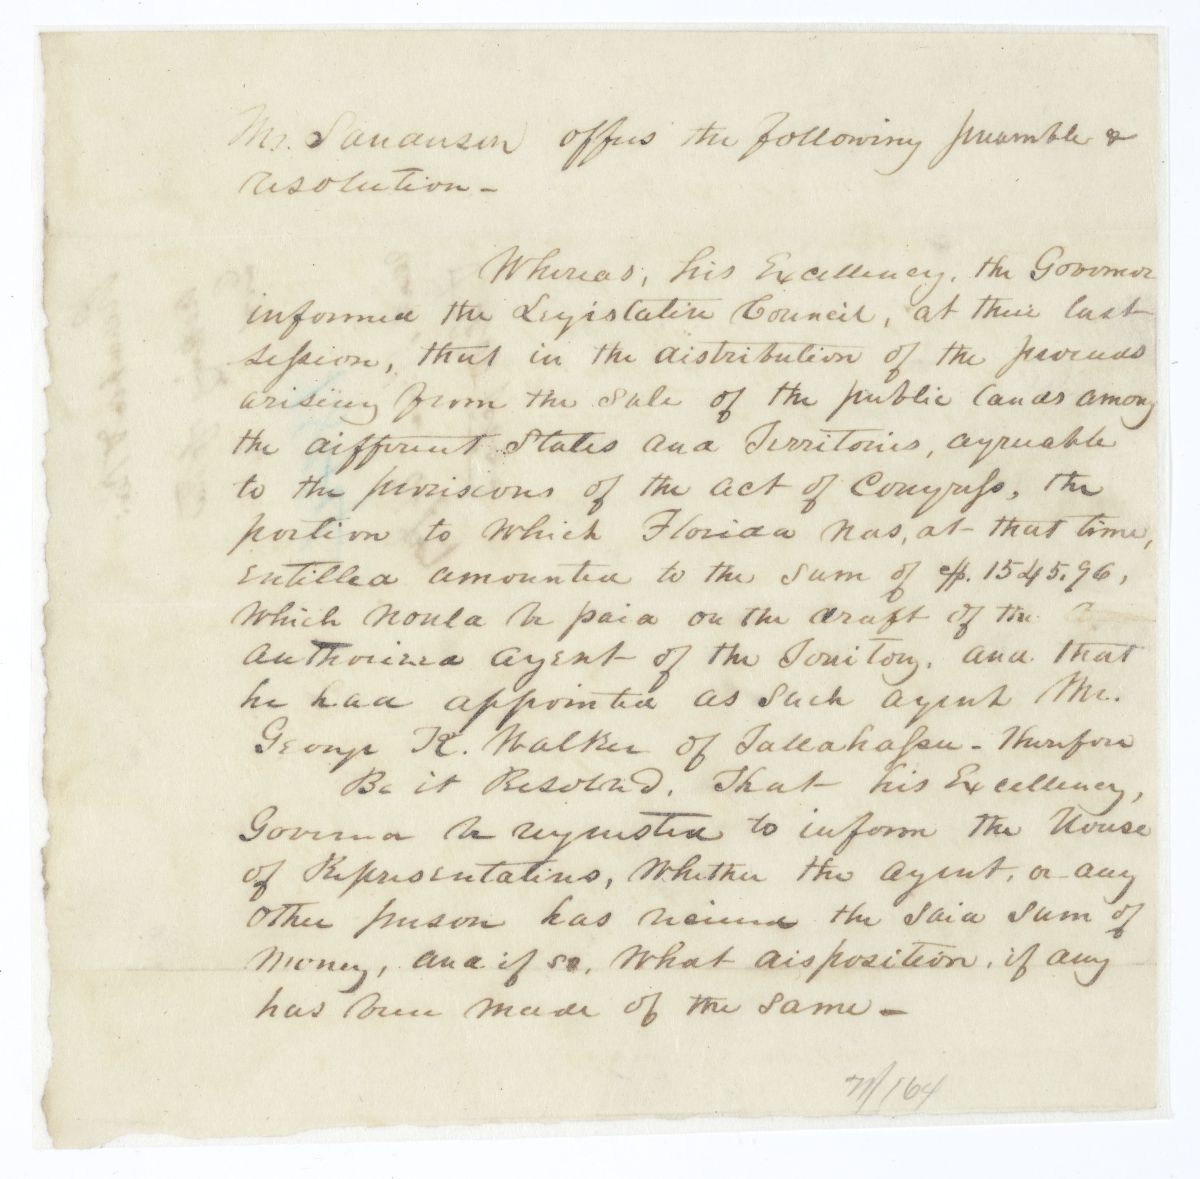 Mr. Sanderson offers the following preamble &
resolution -
Whereas, his Excellency, the Governor
informed the Legislative Council, at their last
session, that in the distribution of the proceeds
arising from the sale of the public lands among
the different States and Territories, agreeable
to the provisions of the act of Congress, the
portion to which Florida was, at that time,
entitled amounted to the sum of $. 1545.96,
which would be paid on the draft of the
authorized agent of the Territory, and that
he had appointed as such agent Mr.
George K. Walker of Tallahassee - Therefore
Be it Resolved, That his Excellency,
Governor be requested to inform the House
of Representatives, whether the agent, or any
other person has received the said sum of
money, and if so, what disposition, if any
has been made of the same -
71/164